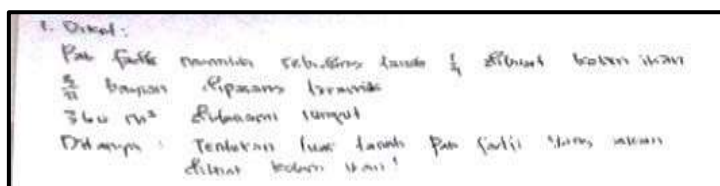 1. Diket :
Pak Fadli memiliki sebidang tanah 1/4 dibuat kolam ikan
bagian dipasang keramik
360 m² ditanami rumput
Ditanya : Tentukan luas tanah Pak Fadli yang akan
dibuat kolam ikan!